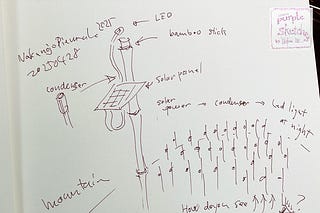 2025
20250428
LED
bamboo stick
condenser
solar panel
solar power → condenser → Led light at night
mountain
How do you see ↑↑↑
?
purple
sketch